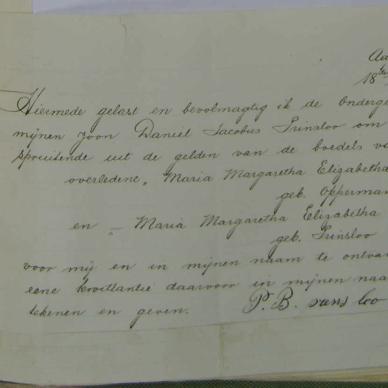 Aa
18te
Hiermede gelast en bevolmagtig ik de onderge
mijnen zoon Daniël Jacobus Prinsloo om
spruitende uit de gelden van de boedels va
overledene, Maria Margaretha Elizabetha
geb. Opperman
en — Maria Margaretha Elizabetha
geb. Prinsloo
voor mij en in mijnen naam te ontvan
eene kwitantie daarvoor in mijnen naa
tekenen en geven. P. B. prinsloo